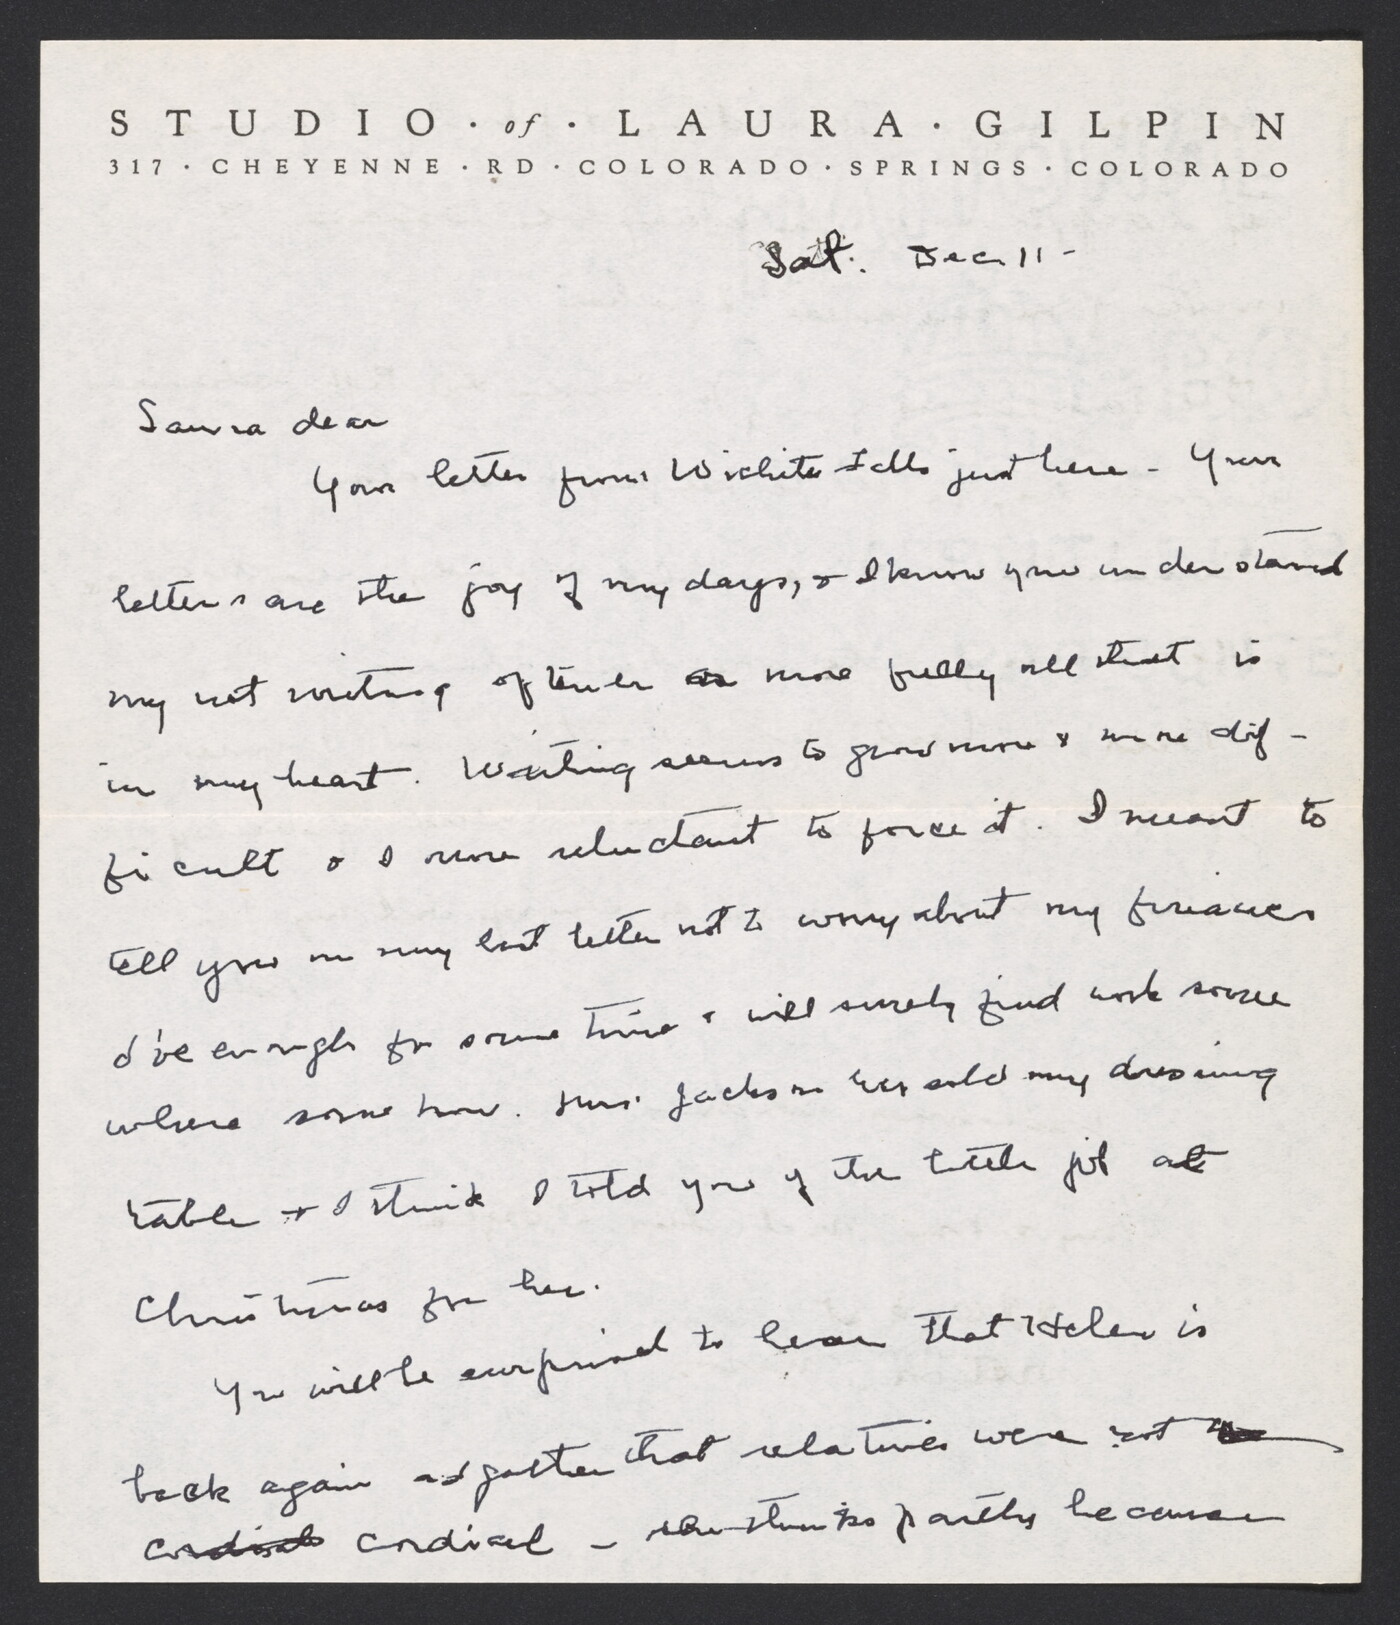 STUDIO · of · LAURA · GILPIN
317 · CHEYENNE · RD · COLORADO · SPRINGS · COLORADO
Sat. Dec. 11 -
Laura dear
Your letter from Wichita Falls just here - Your
letters are the joy of my days, & I know you understand
my not writing oftener or more fully all that is
in my heart. Writing seems to grow more & more dif-
ficult & I more reluctant to force it. I meant to
tell you in my last letter not to worry about my finances
I've enough for some time & will surely find work some
where some how. Mrs. Jackson has sold my dressing
table & I think I told you of the little job at
Christmas for her.
You will be surprised to hear that Helen is
back again and gather that relatives were not
cordial cordial - she thinks partly because